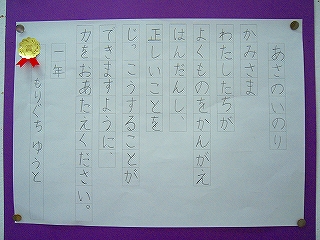 あさのいのり
かみさま
わたしたちが
よくものをかんがえ
はんだんし、
正しいことを
じっこうすることが
できますように、
力をおあたえください。
一年
もりぐちゆうと